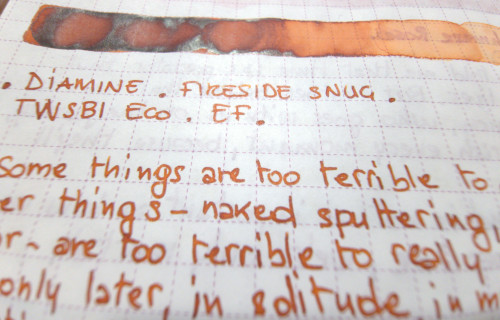 . DiAMINE . FIRESIDE SNUG .
TWSBI ECO . EF .
Some things are too terrible to
er things - naked sputtering,
r - are too terrible to really
only later, in solitude in m